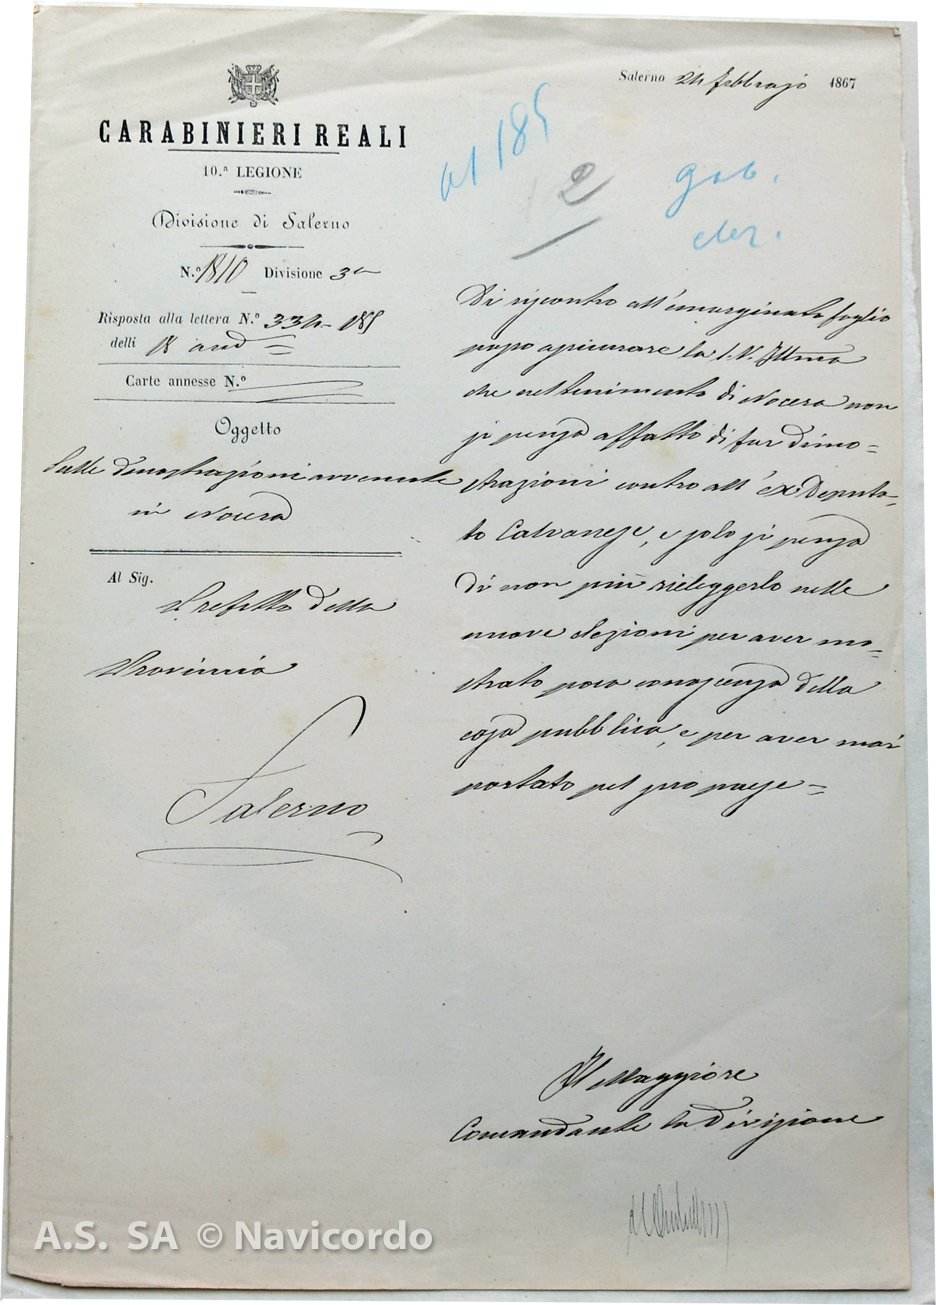 Salerno 24 febbrajo 1867
CARABINIERI REALI
10.ª LEGIONE
Divisione di Salerno
N.º 1810 Divisione 3ª
Risposta alla lettera N.º 334-185
delli 18 and
Carte annesse N.º
Oggetto
Sulle dimostrazioni avvenute
in Nocera
Al Sig.
Prefetto della
Provincia
Salerno
al 185
2
gab.
elez.
Di riscontro all'emarginato foglio
posso assicurare la S.V. Ill.ma
che nel tenimento di Nocera non
si pensa affatto di far dimo=
strazioni contro all'ex Deputa=
to Calvanese, e solo si pensa
di non più rieleggerlo nelle
nuove elezioni per aver mo=
strato poca conoscenza della
cosa pubblica, e per aver mai
portato pel suo paese=
Il Maggiore
Comandante la Divisione
A.S. SA © Navicordo